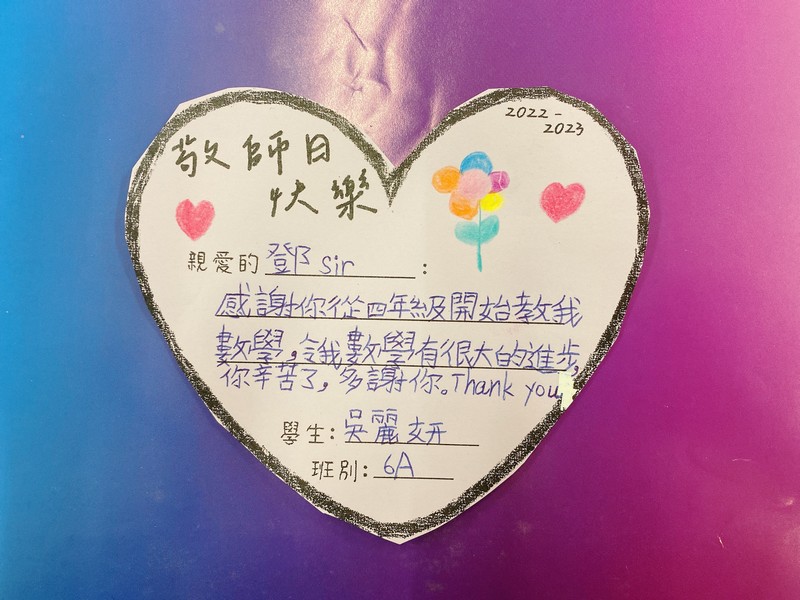 2022-
2023
敬師日
快樂
親愛的 鄧 Sir :
感謝你從四年級開始教我
數學，令我數學有很大的進步，
你辛苦了，多謝你。Thank you
學生：吳麗妍
班別：6A